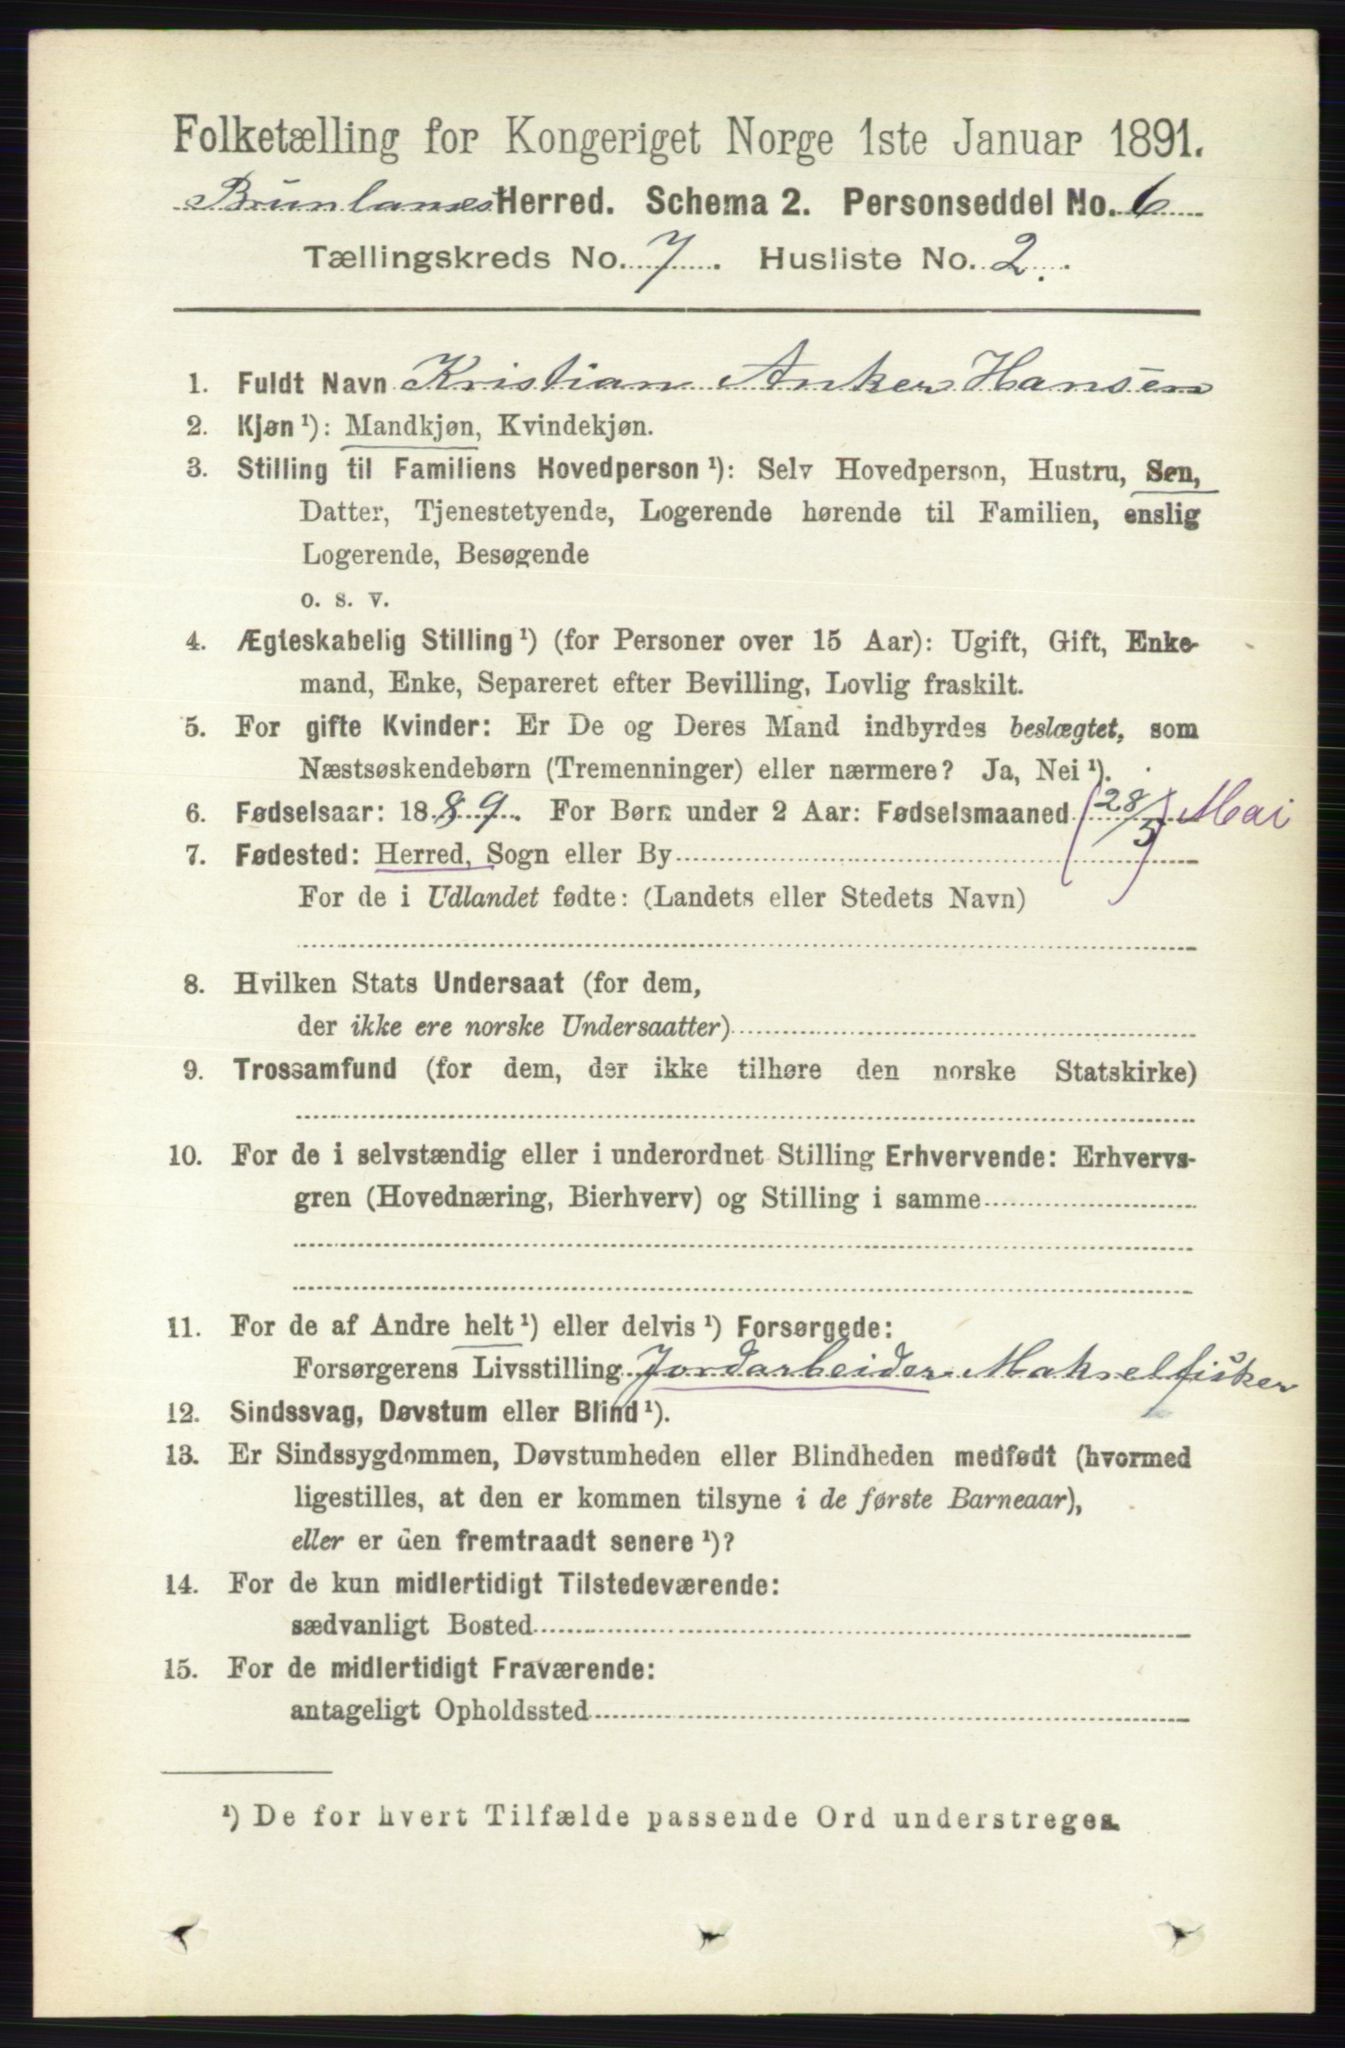 Folketælling for Kongeriget Norge 1ste Januar 1891.
Brunlanes Herred. Schema 2. Personseddel No. 6
Tællingskreds No. 7. Husliste No. 2.
1. Fuldt Navn Kristian Anker Hansen
2. Kjøn ¹): Mandkjøn, Kvindekjøn.
3. Stilling til Familiens Hovedperson ¹): Selv Hovedperson, Hustru, Søn,
Datter, Tjenestetyende, Logerende hørende til Familien, enslig
Logerende, Besøgende
o. s. v.
4. Ægteskabelig Stilling ¹) (for Personer over 15 Aar): Ugift, Gift, Enke-
mand, Enke, Separeret efter Bevilling, Lovlig fraskilt.
5. For gifte Kvinder: Er De og Deres Mand indbyrdes beslægtet, som
Næstsøskendebørn (Tremenninger) eller nærmere? Ja, Nei ¹).
6. Fødselsaar: 1889. For Børn under 2 Aar: Fødselsmaaned (28/5) Mai
7. Fødested: Herred, Sogn eller By
For de i Udlandet fødte: (Landets eller Stedets Navn)
8. Hvilken Stats Undersaat (for dem,
der ikke ere norske Undersaatter)
9. Trossamfund (for dem, der ikke tilhøre den norske Statskirke)
10. For de i selvstændig eller i underordnet Stilling Erhvervende: Erhvervs-
gren (Hovednæring, Bierhverv) og Stilling i samme
11. For de af Andre helt ¹) eller delvis ¹) Forsørgede:
Forsørgerens Livsstilling Jordarbeider Makselfisker
12. Sindssvag, Døvstum eller Blind ¹).
13. Er Sindssygdommen, Døvstumheden eller Blindheden medfødt (hvormed
ligestilles, at den er kommen tilsyne i de første Barneaar),
eller er den fremtraadt senere ¹)?
14. For de kun midlertidigt Tilstedeværende:
sædvanligt Bosted
15. For de midlertidigt Fraværende:
antageligt Opholdssted
¹) De for hvert Tilfælde passende Ord understreges.